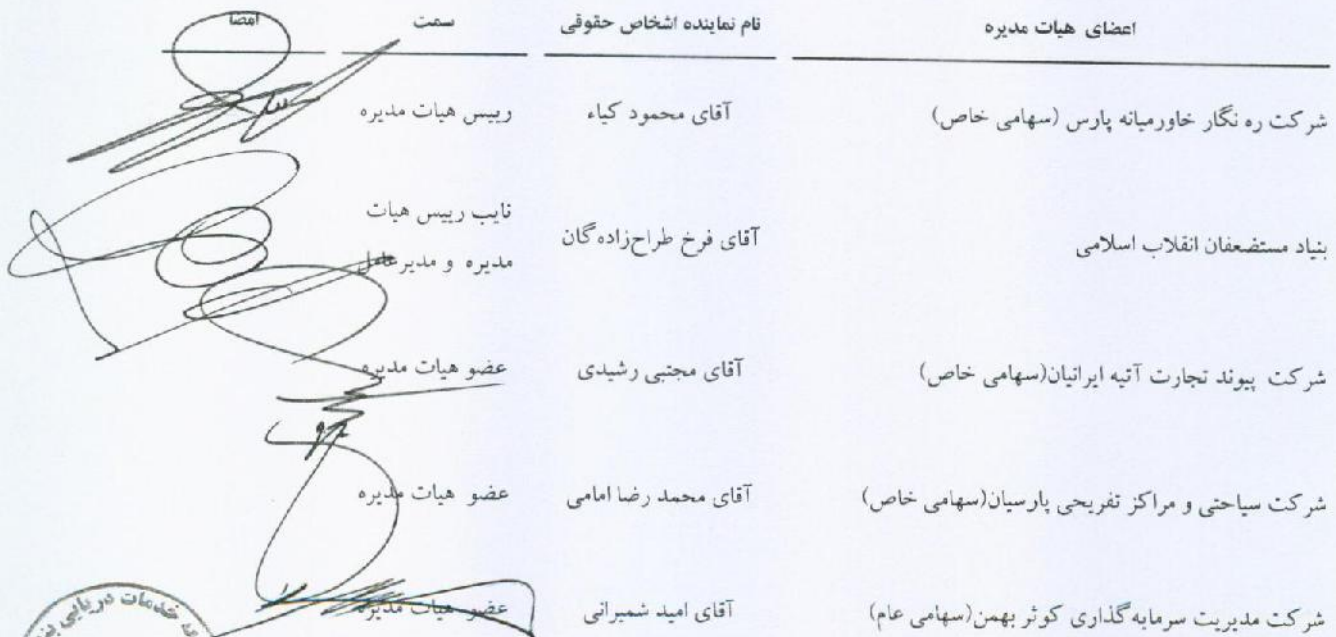 اعضای هیات مدیره نام نماینده اشخاص حقوقی سمت امضا
شرکت ره نگار خاورمیانه پارس (سهامی خاص) آقای محمود کیاء رییس هیات مدیره
بنیاد مستضعفان انقلاب اسلامی آقای فرخ طراح‌زاده‌گان نایب رییس هیات
مدیره و مدیرعامل
شرکت پیوند تجارت آتیه ایرانیان(سهامی خاص) آقای مجتبی رشیدی عضو هیات مدیره
شرکت سیاحتی و مراکز تفریحی پارسیان(سهامی خاص) آقای محمد رضا امامی عضو هیات مدیره
شرکت مدیریت سرمایه‌گذاری کوثر بهمن(سهامی عام) آقای امید شمیرانی عضو هیات مدیره
خدمات دریایی